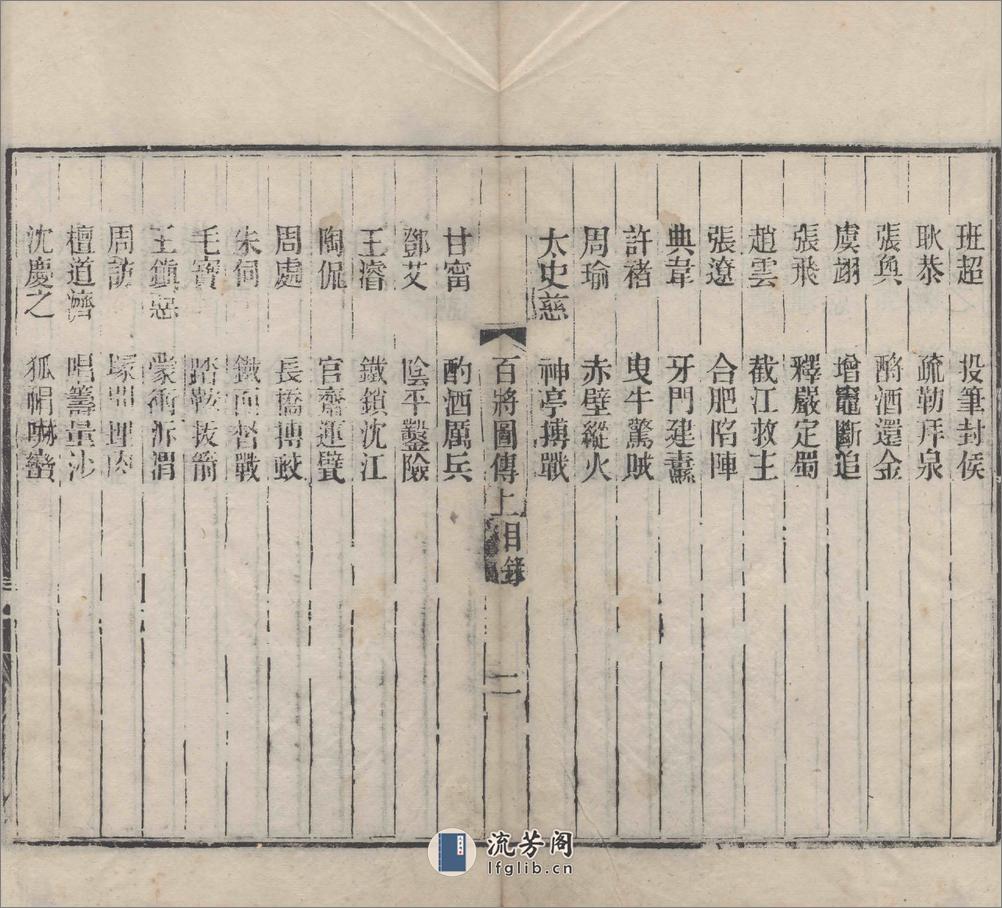 班超　投筆封侯
耿恭　疏勒拜泉
張奐　酹酒還金
虞翊　增竈斷追
張飛　釋嚴定蜀
趙雲　截江救主
張遼　合肥陷陣
典韋　牙門建纛
許褚　曳牛驚賊
周瑜　赤壁縱火
太史慈　神亭摶戰
百將圖傳上目錄　二
甘甯　酌酒厲兵
鄧艾　陰平鑿險
王濬　鐵鎖沈江
陶侃　官齋運甓
周處　長橋摶蛟
朱伺　鐵面督戰
毛寶　踏鞍拔箭
王鎮惡　蒙衝泝渭
周訪　塚間埋肉
檀道濟　唱籌量沙
沈慶之　狐帽嚇蠻
流芳阁
lfglib.cn